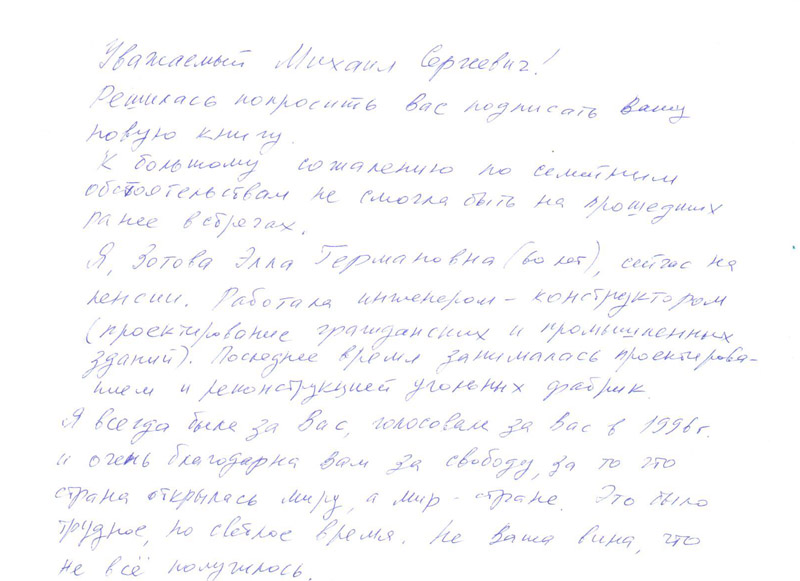 Уважаемый Михаил Сергеевич!
Решилась попросить вас подписать вашу
новую книгу.
К большому сожалению по семейным
обстоятельствам не смогла быть на прошедших
ранее встречах.
Я, Зотова Элла Германовна (60 лет), сейчас на
пенсии. Работала инженером-конструктором
(проектирование гражданских и промышленных
зданий). Последнее время занималась проектирова-
нием и реконструкцией угольных фабрик.
Я всегда была за Вас, голосовала за Вас в 1996г.
и очень благодарна Вам за свободу, за то что
страна открылась миру, а мир - стране. Это было
трудное, но светлое время. Не Ваша вина, что
не всё получилось.